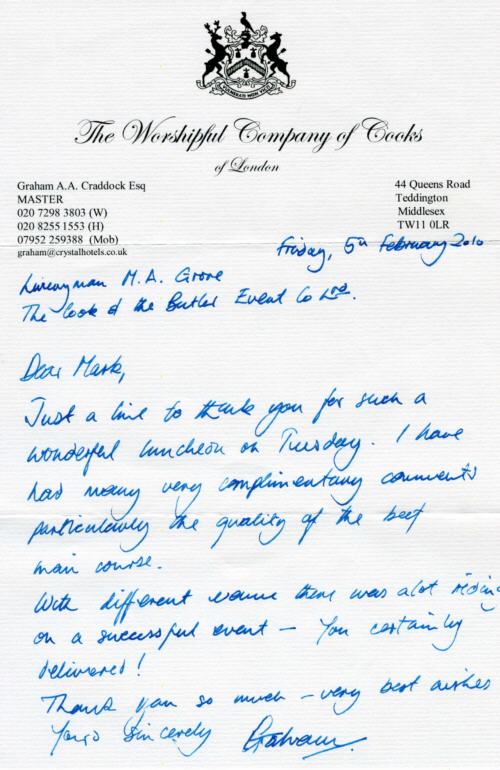 VULNERATI NON VICTI
The Worshipful Company of Cooks
of London
Graham A.A. Craddock Esq
MASTER
020 7298 3803 (W)
020 8255 1553 (H)
07952 259388 (Mob)
graham@crystalhotels.co.uk
44 Queens Road
Teddington
Middlesex
TW11 0LR
Friday, 5th February 2010
Liveryman M.A. Grove
The Cook & the Butler Event Co Ltd.
Dear Mark,
Just a line to thank you for such a
wonderful luncheon on Tuesday. I have
had many very complimentary comments
particularly the quality of the beef
main course.
With different venue there was alot riding
on a successful event – You certainly
delivered!
Thank you so much – very best wishes
Yours Sincerely Graham.